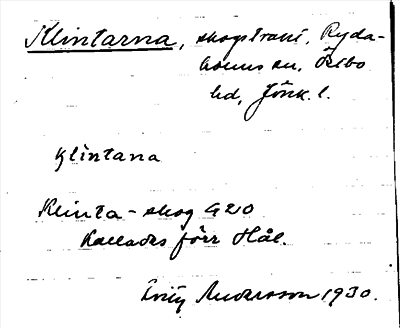 Klintarna, skogstrakt, Ryda-
holms sn, Östbo
hd, Jönk. l.
klintana
Klinta-skog G20
Kallades förr Hål.
Fritz Andersson 1930.